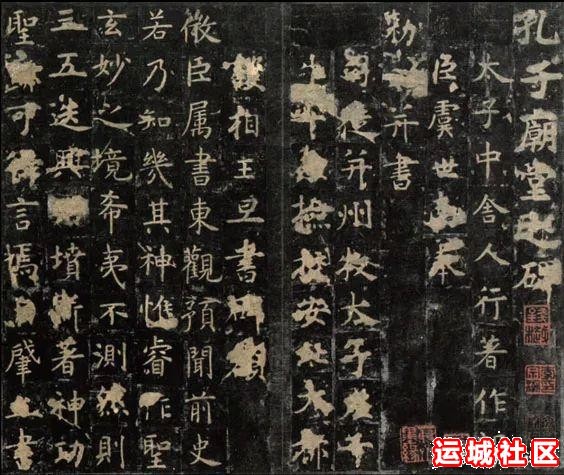 孔子廟堂之碑
太子中舍人行著作
臣虞世南奉
勑并書
司徒并州牧太子左千
牛率兼檢校安北大都
護相王旦書碑額
微臣属書東觀預聞前史
若乃知幾其神惟睿作聖
玄妙之境希夷不測然則
三五迭興墳斯著神功
聖可得言焉肇立書
运城社区